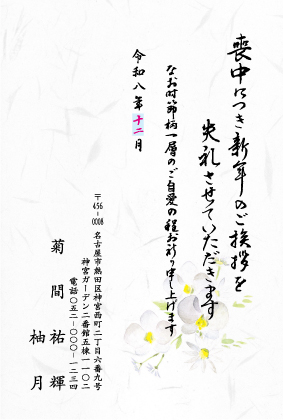 喪中につき新年のご挨拶を
失礼させていただきます
なお時節柄一層のご自愛の程お祈り申し上げます
令和八年十二月
〒456-0008
名古屋市熱田区神宮西町二丁目六番九号
神宮ガーデン二番館五棟一一〇二
電話〇五二-〇〇〇-一二三四
菊間祐輝
柚月